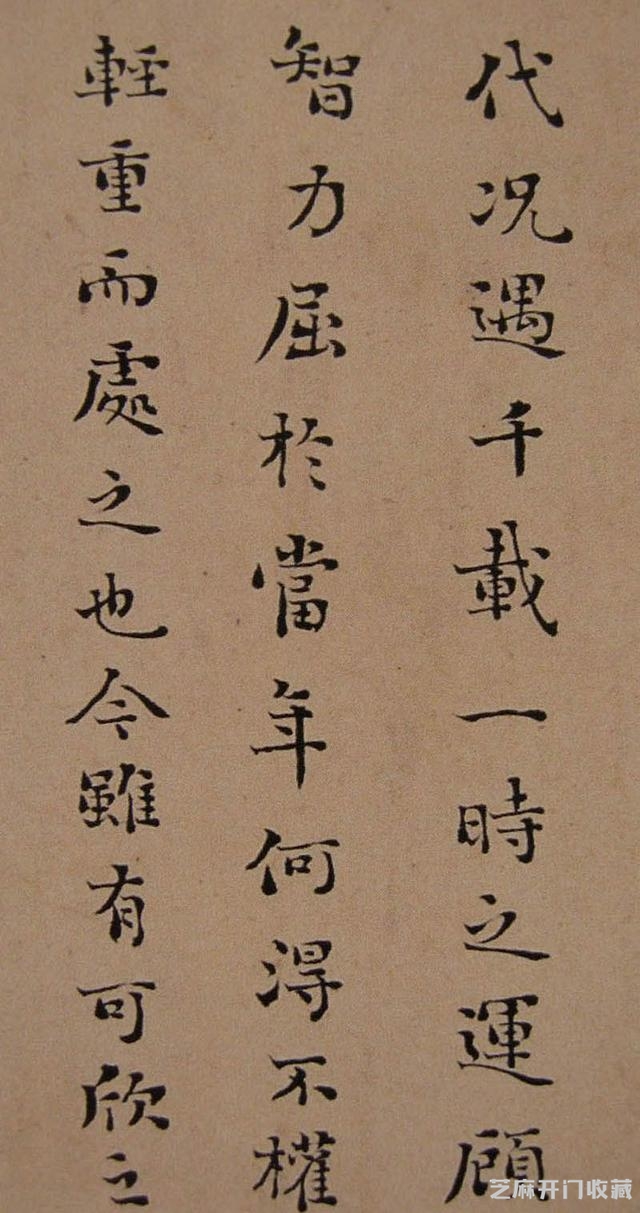 代况遇千載一時之運顧
智力屈於當年何得不權
輕重而處之也今雖有可欣之
芝麻开门收藏